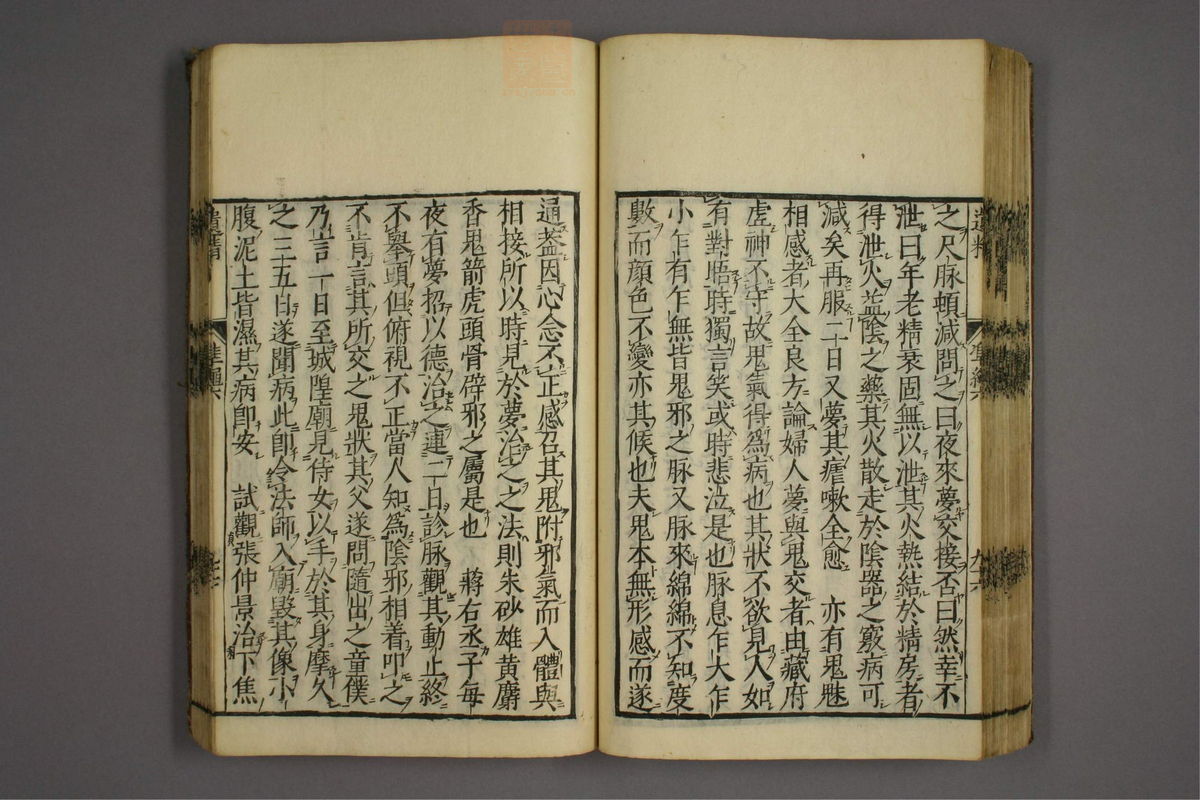 之尺脉頓減問之曰夜來夢交接否曰然幸不
泄曰年老精衰固無以泄其火熱結於精房者
得泄火益陰之藥其火散走於陰器之竅病可
減矣再服二日又夢其瘧嗽全愈　亦有鬼魅
相感者大全良方論婦人夢與鬼交者由藏府
虛神不守故鬼氣得爲病也其狀不欲見人如
有對晤時獨言笑或時悲泣是也脉息乍大乍
小乍有乍無皆鬼邪之脉又脉來綿綿不知度
數而顔色不變亦其候也夫鬼本無形感而遂
通蓋因心念不正感召其鬼附邪氣而入體與
相接所以時見於夢治之之法則朱砂雄黃麝
香鬼箭虎頭骨辟邪之屬是也　蔣右丞子每
夜有夢招以德治之連二日診脉觀其動止終
不舉頭但俯視不正當人知爲陰邪相着叩之
不肯言其所交之鬼狀其父遂問隨出之童僕
乃言一日至城隍廟見侍女以手於其身摩久
之三五日遂聞病此卽令法師入廟毀其像小
腹泥土皆濕其病卽安　試觀張仲景治下焦